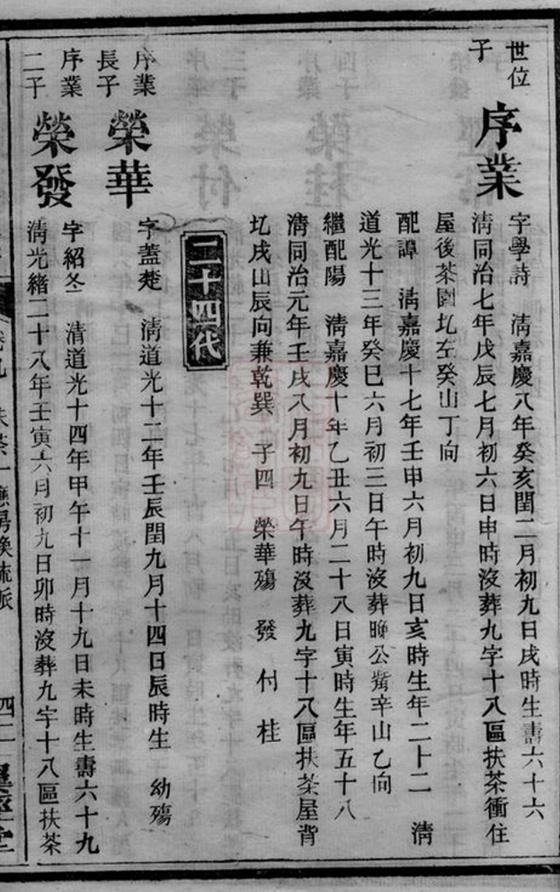 世位
子
序業
字學詩　清嘉慶八年癸亥閏二月初九日戌時生壽六十六
清同治七年戊辰七月初六日申時沒葬九字十八區扶茶衝住
屋後茶園圠左癸山丁向
配譚　清嘉慶十七年壬申六月初九日亥時生年二十二　清
道光十三年癸巳六月初三日午時沒葬晚公嘴辛山乙向
繼配陽　清嘉慶十年乙丑六月二十八日寅時生年五十八
清同治元年壬戌八月初九日午時沒葬九字十八區扶茶屋背
圠戌山辰向兼乾巽　子四　榮華殤　發　付　桂
二十四代
序業
長子
榮華
字蓋楚　清道光十二年壬辰閏九月十四日辰時生　幼殤
序業
二子
榮發
字紹冬　清道光十四年甲午十一月十九日未時生壽六十九
清光緒二十八年壬寅六月初九日卯時沒葬九字十八區扶茶